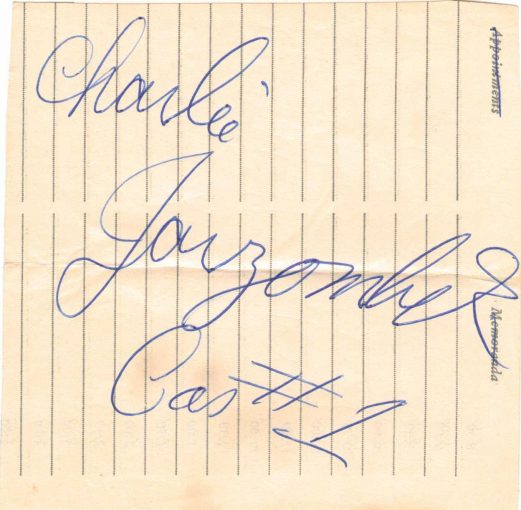 Charlie
Jarzombek
Cas #1
Appointments
Memoranda